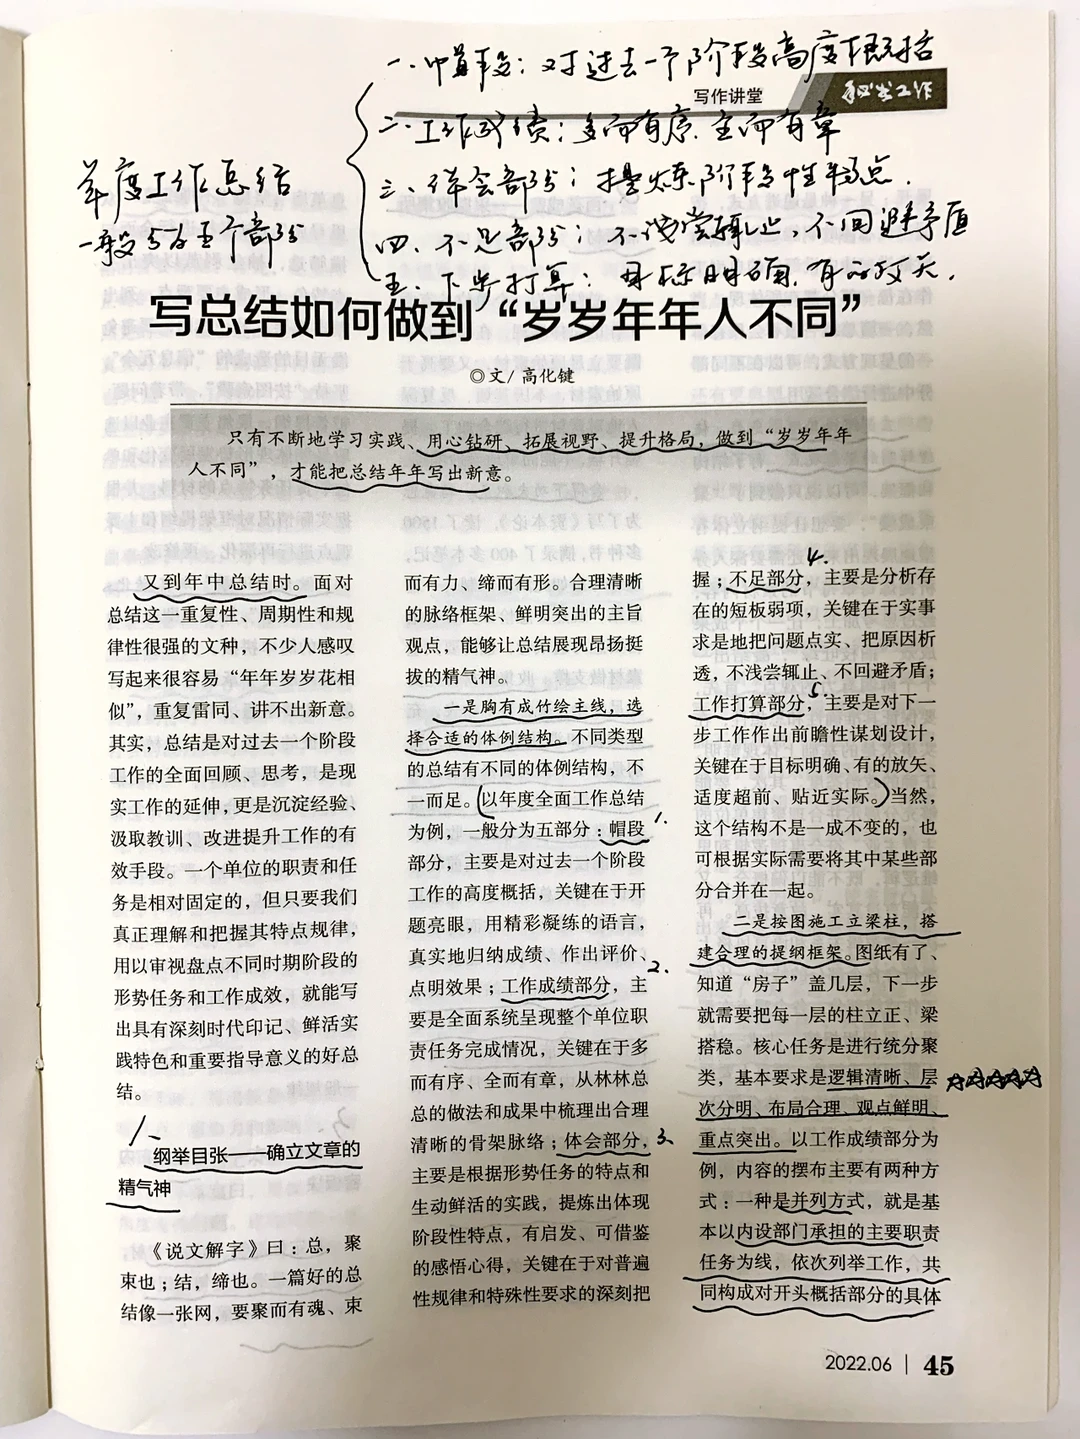 一、帽段：对过去一个阶段高度概括
写作讲堂
秘书工作
二、工作成绩：多而有序、全而有章
年度工作总结
一般分为五个部分
三、体会部分：提炼阶段性特点.
四、不足部分：不浅尝辄止、不回避矛盾
五、下步打算：目标明确、有的放矢.
写总结如何做到“岁岁年年人不同”
◎文/ 高化键
只有不断地学习实践、用心钻研、拓展视野、提升格局，做到“岁岁年年
人不同”，才能把总结年年写出新意。
又到年中总结时。面对
总结这一重复性、周期性和规
律性很强的文种，不少人感叹
写起来很容易“年年岁岁花相
似”，重复雷同、讲不出新意。
其实，总结是对过去一个阶段
工作的全面回顾、思考，是现
实工作的延伸，更是沉淀经验、
汲取教训、改进提升工作的有
效手段。一个单位的职责和任
务是相对固定的，但只要我们
真正理解和把握其特点规律，
用以审视盘点不同时期阶段的
形势任务和工作成效，就能写
出具有深刻时代印记、鲜活实
践特色和重要指导意义的好总
结。
一、
纲举目张——确立文章的
精气神
《说文解字》曰：总，聚
束也；结，缔也。一篇好的总
结像一张网，要聚而有魂、束
而有力、缔而有形。合理清晰
的脉络框架、鲜明突出的主旨
观点，能够让总结展现昂扬挺
拔的精气神。
一是胸有成竹绘主线，选
择合适的体例结构。不同类型
的总结有不同的体例结构，不
一而足。（以年度全面工作总结
为例，一般分为五部分：帽段
1.
部分，主要是对过去一个阶段
工作的高度概括，关键在于开
题亮眼，用精彩凝练的语言，
真实地归纳成绩、作出评价、
2.
点明效果；工作成绩部分，主
要是全面系统呈现整个单位职
责任务完成情况，关键在于多
而有序、全而有章，从林林总
总的做法和成果中梳理出合理
清晰的骨架脉络；体会部分，
3.
主要是根据形势任务的特点和
生动鲜活的实践，提炼出体现
阶段性特点，有启发、可借鉴
的感悟心得，关键在于对普遍
性规律和特殊性要求的深刻把
4.
握；不足部分，主要是分析存
在的短板弱项，关键在于实事
求是地把问题点实、把原因析
透，不浅尝辄止、不回避矛盾；
5
工作打算部分，主要是对下一
步工作作出前瞻性谋划设计，
关键在于目标明确、有的放矢、
适度超前、贴近实际。）当然，
这个结构不是一成不变的，也
可根据实际需要将其中某些部
分合并在一起。
二是按图施工立梁柱，搭
建合理的提纲框架。图纸有了、
知道“房子”盖几层，下一步
就需要把每一层的柱立正、梁
搭稳。核心任务是进行统分聚
类，基本要求是逻辑清晰、层
次分明、布局合理、观点鲜明、
重点突出。以工作成绩部分为
例，内容的摆布主要有两种方
式：一种是并列方式，就是基
本以内设部门承担的主要职责
任务为线，依次列举工作，共
同构成对开头概括部分的具体
2022.06 | 45